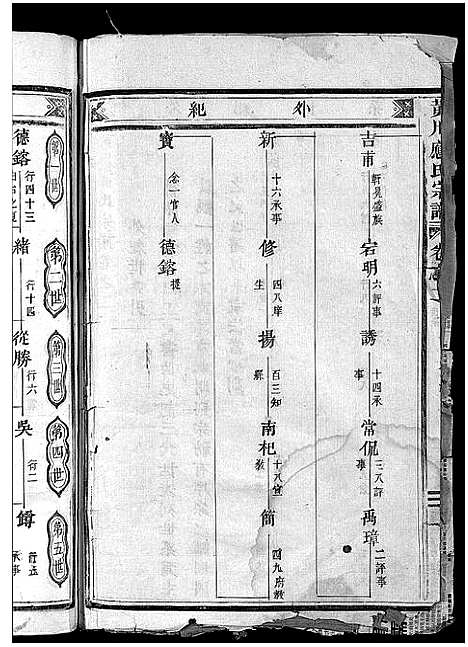 黃川應氏宗譜 卷
外紀
吉甫 軒冕盛族 宕明 六評事 誘 十四承事 常侃 三八評事 禹璋 二評事
新 十六承事 修 四八庠生 揚 百三知縣 南杞 十八宣教 簡 四九府教
寶 念一官人 德鎔 提
第一世 第二世 第三世 第四世 第五世
德鎔 行四十三 緒 行十四 從勝 行六 吳 行二 鐏 行五承事